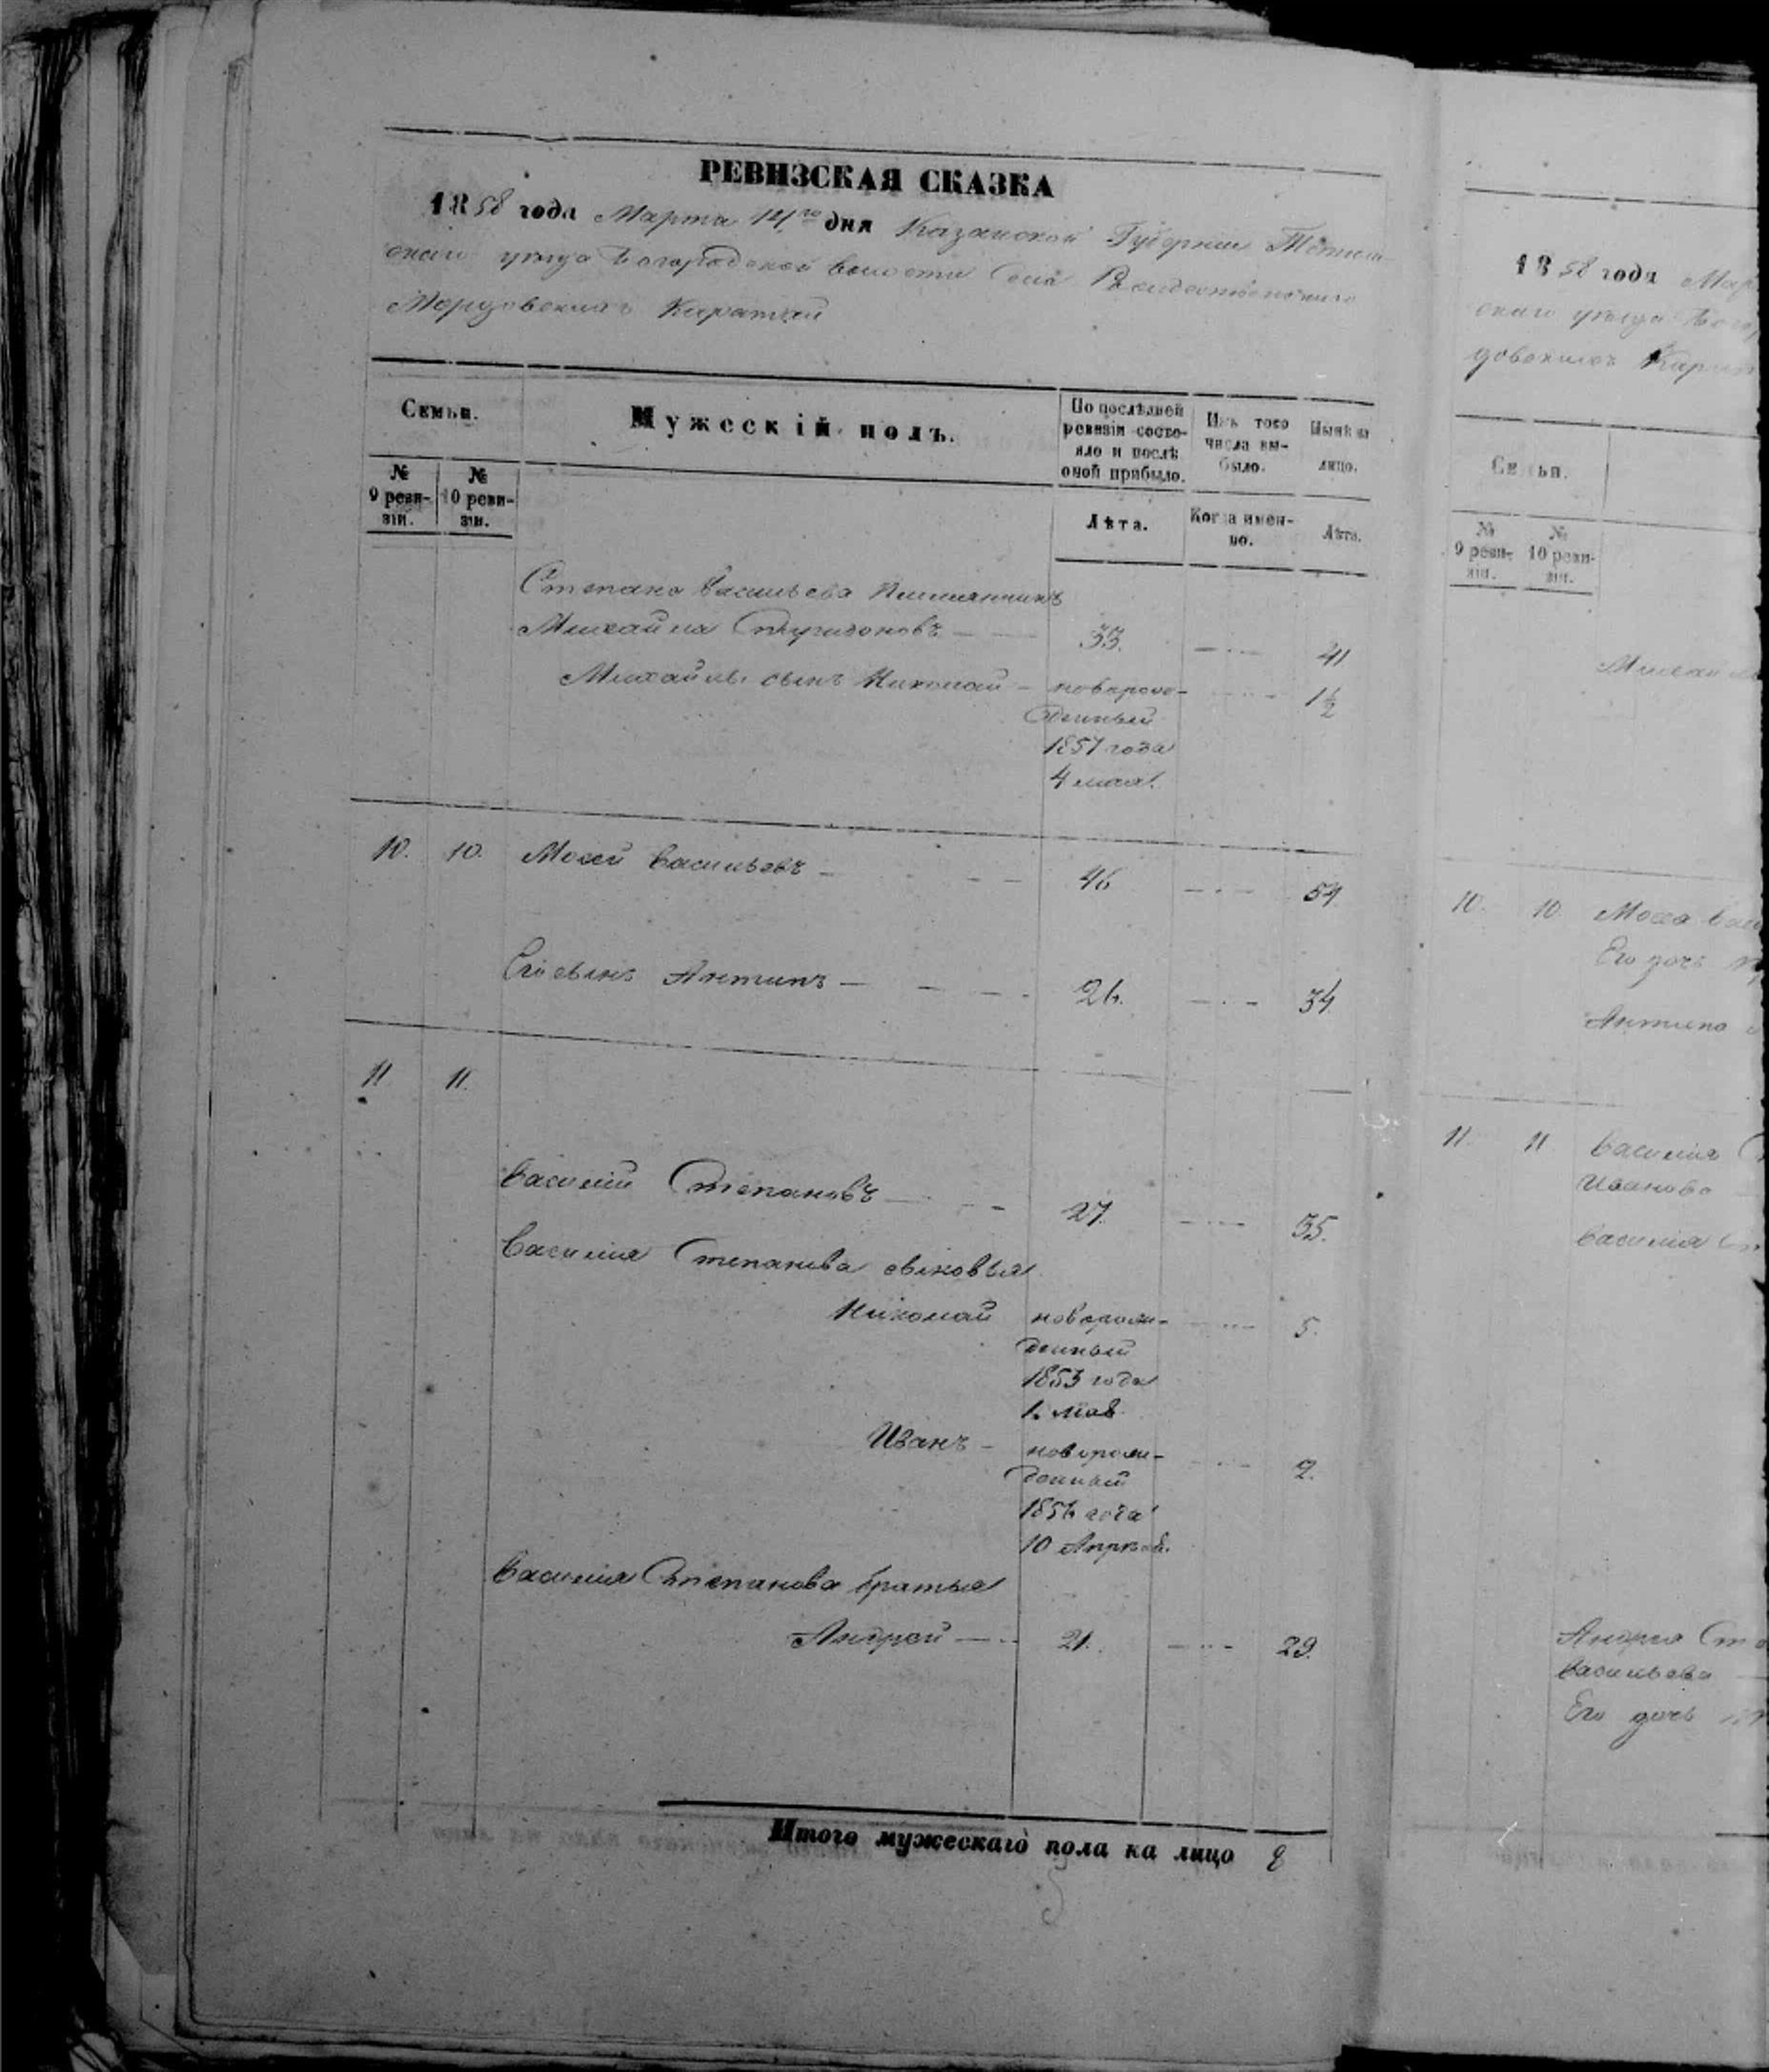 РЕВИЗСКАЯ СКАЗКА
1858 года Марта 14го дня Казанской Губернии Тетюш-
скаго уѣзда Богородской волости Села Рождественскаго
Мордовскихъ Каратай
Семьи.
Мужескій полъ.
По послѣдней
ревизіи состо-
яло и послѣ
оной прибыло.
Изъ того
числа вы-
было.
Нынѣ на
лицо.
№
9 реви-
зіи.
№
10 реви-
зіи.
Лѣта.
Когда имен-
но.
Лѣта.
Степана Васильева племянникъ
Михайла Спиридоновъ 33. 41
Михайлы сынъ Николай - новорож- 1½
денный
1857 года
4 мая.
10. 10. Мосей Васильевъ 46 54
Его сынъ Антипъ 26. 34.
11 11.
Василій Степановъ 27. 35.
Василія Степанова сыновья
Николай новорож- 5.
денный
1853 года
1. мая
Иванъ новорож- 2.
денный
1856 года
10 Апрѣля.
Василія Степанова братья
Андрей 21. 29.
Итого мужескаго пола на лицо 8
1858 года Мар
скаго уѣзда Бого
довскихъ Карат
Семьи.
№
9 реви-
зіи.
№
10 реви-
зіи.
10. 10. Мосея Васи
Его дочь
Антипа
11. 11 Василія С
Иванова
Василія Ст
Андрея Ст
Васильева
Его дочь